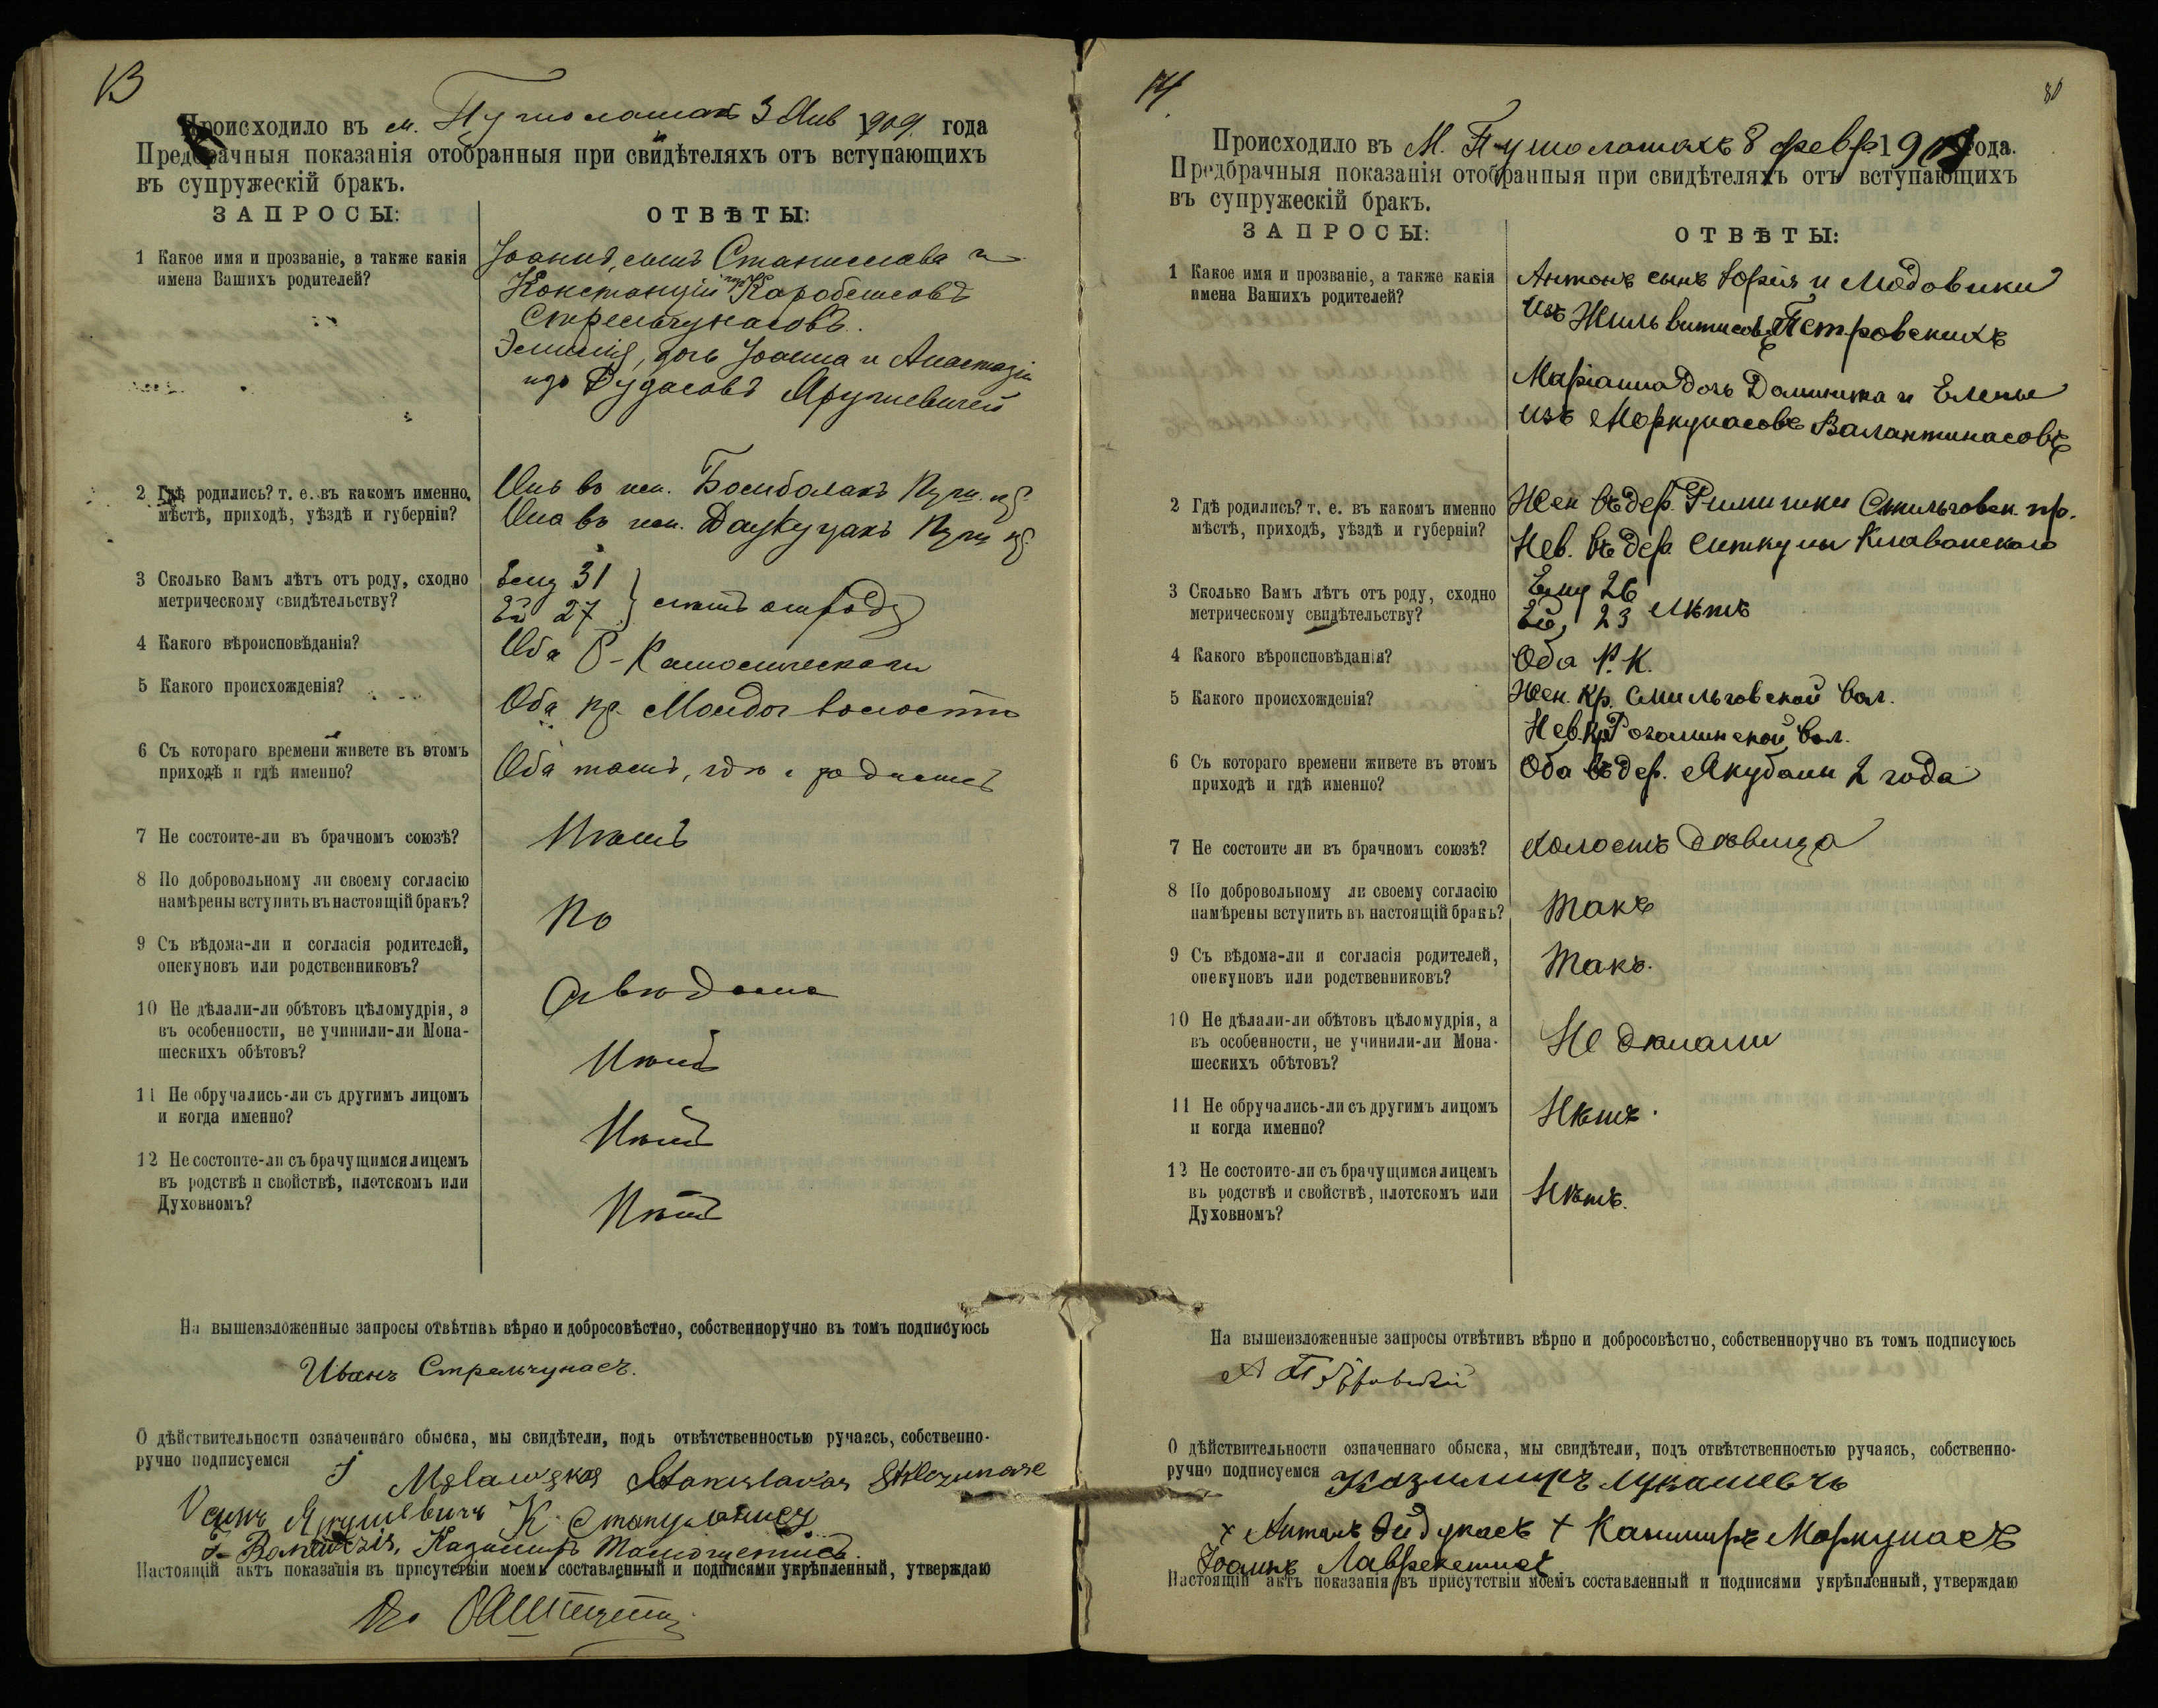 13
Происходило въ м. Пушолотахъ 3 Янв 1909 года
Предбрачныя показанія отобранныя при свидѣтеляхъ отъ вступающихъ
въ супружескій бракъ.
ЗАПРОСЫ: ОТВѢТЫ:
1 Какое имя и прозваніе, а также какія
имена Вашихъ родителей?
Іоаннъ, сынъ Станислава и
Констанціи
Стрельчунасовъ.
Эмилія, дочь Іоанна и Анастазіи
изъ Дудасовъ Ярушевичей
2 Гдѣ родились? т. е. въ какомъ именно
мѣстѣ, приходѣ, уѣздѣ и губерніи?
Онъ въ им. пр.
Она въ им. пр.
3 Сколько Вамъ лѣтъ отъ роду, сходно
метрическому свидѣтельству?
Ему 31
Ей 27 } лѣтъ отъ роду
4 Какого вѣроисповѣданія?
Оба Р-Католическаго
5 Какого происхожденія?
Оба кр. волости
6 Съ котораго времени живете въ этомъ
приходѣ и гдѣ именно?
Оба тамъ, гдѣ и родились
7 Не состоите-ли въ брачномъ союзѣ?
Нѣтъ
8 По добровольному ли своему согласію
намѣрены вступить въ настоящій бракъ?
По
9 Съ вѣдома-ли и согласія родителей,
опекуновъ или родственниковъ?
Съ вѣдома
10 Не дѣлали-ли обѣтовъ цѣломудрія, а
въ особенности, не учинили-ли Мона-
шескихъ обѣтовъ?
Нѣтъ
11 Не обручались-ли съ другимъ лицомъ
и когда именно?
Нѣтъ
12 Не состоите-ли съ брачущимся лицемъ
въ родствѣ и свойствѣ, плотскомъ или
Духовномъ?
Нѣтъ
На вышеизложенные запросы отвѣтивъ вѣрно и добросовѣстно, собственноручно въ томъ подписуюсь
Иванъ Стрельчунасъ.
О дѣйствительности означеннаго обыска, мы свидѣтели, подъ отвѣтственностью ручаясь, собственно-
ручно подписуемся
Ярушевичъ К.
Казимиръ
Настоящій актъ показанія въ присутствіи моемъ составленный и подписями укрѣпленный, утверждаю
14 80
Происходило въ М. Пушолотахъ 8 февр. 1909 года.
Предбрачныя показанія отобранныя при свидѣтеляхъ отъ вступающихъ
въ супружескій бракъ.
ЗАПРОСЫ: ОТВѢТЫ:
1 Какое имя и прозваніе, а также какія
имена Вашихъ родителей?
Антонъ сынъ Юрія и Людовики
изъ Жильвитисовъ Петровскихъ
Маріанна дочь Доминика и Елены
изъ Моркунасовъ Валантинасовъ
2 Гдѣ родились? т. е. въ какомъ именно
мѣстѣ, приходѣ, уѣздѣ и губерніи?
Жен. въ дер. Римишки Смильговск. пр.
Нев. въ дер. Клаванскаго
3 Сколько Вамъ лѣтъ отъ роду, сходно
метрическому свидѣтельству?
Ему 26
Ей, 23 лѣтъ
4 Какого вѣроисповѣданія?
Оба Р. К.
5 Какого происхожденія?
Жен. кр. Смильговской вол.
Нев. кр. вол.
6 Съ котораго времени живете въ этомъ
приходѣ и гдѣ именно?
Оба въ дер. Якубаны 2 года
7 Не состоите ли въ брачномъ союзѣ?
Холостъ дѣвица
8 По добровольному ли своему согласію
намѣрены вступить въ настоящій бракъ?
Такъ
9 Съ вѣдома-ли и согласія родителей,
опекуновъ или родственниковъ?
Такъ.
10 Не дѣлали-ли обѣтовъ цѣломудрія, а
въ особенности, не учинили-ли Мона-
шескихъ обѣтовъ?
Не дѣлали
11 Не обручались-ли съ другимъ лицомъ
и когда именно?
Нѣтъ.
12 Не состоите-ли съ брачущимся лицемъ
въ родствѣ и свойствѣ, плотскомъ или
Духовномъ?
Нѣтъ.
На вышеизложенные запросы отвѣтивъ вѣрно и добросовѣстно, собственноручно въ томъ подписуюсь
О дѣйствительности означеннаго обыска, мы свидѣтели, подъ отвѣтственностью ручаясь, собственно-
ручно подписуемся Казимиръ Лукашевичъ
+ Антонъ Эйдукасъ + Казимиръ Моркунасъ
Іоаннъ
Настоящій актъ показанія въ присутствіи моемъ составленный и подписями укрѣпленный, утверждаю